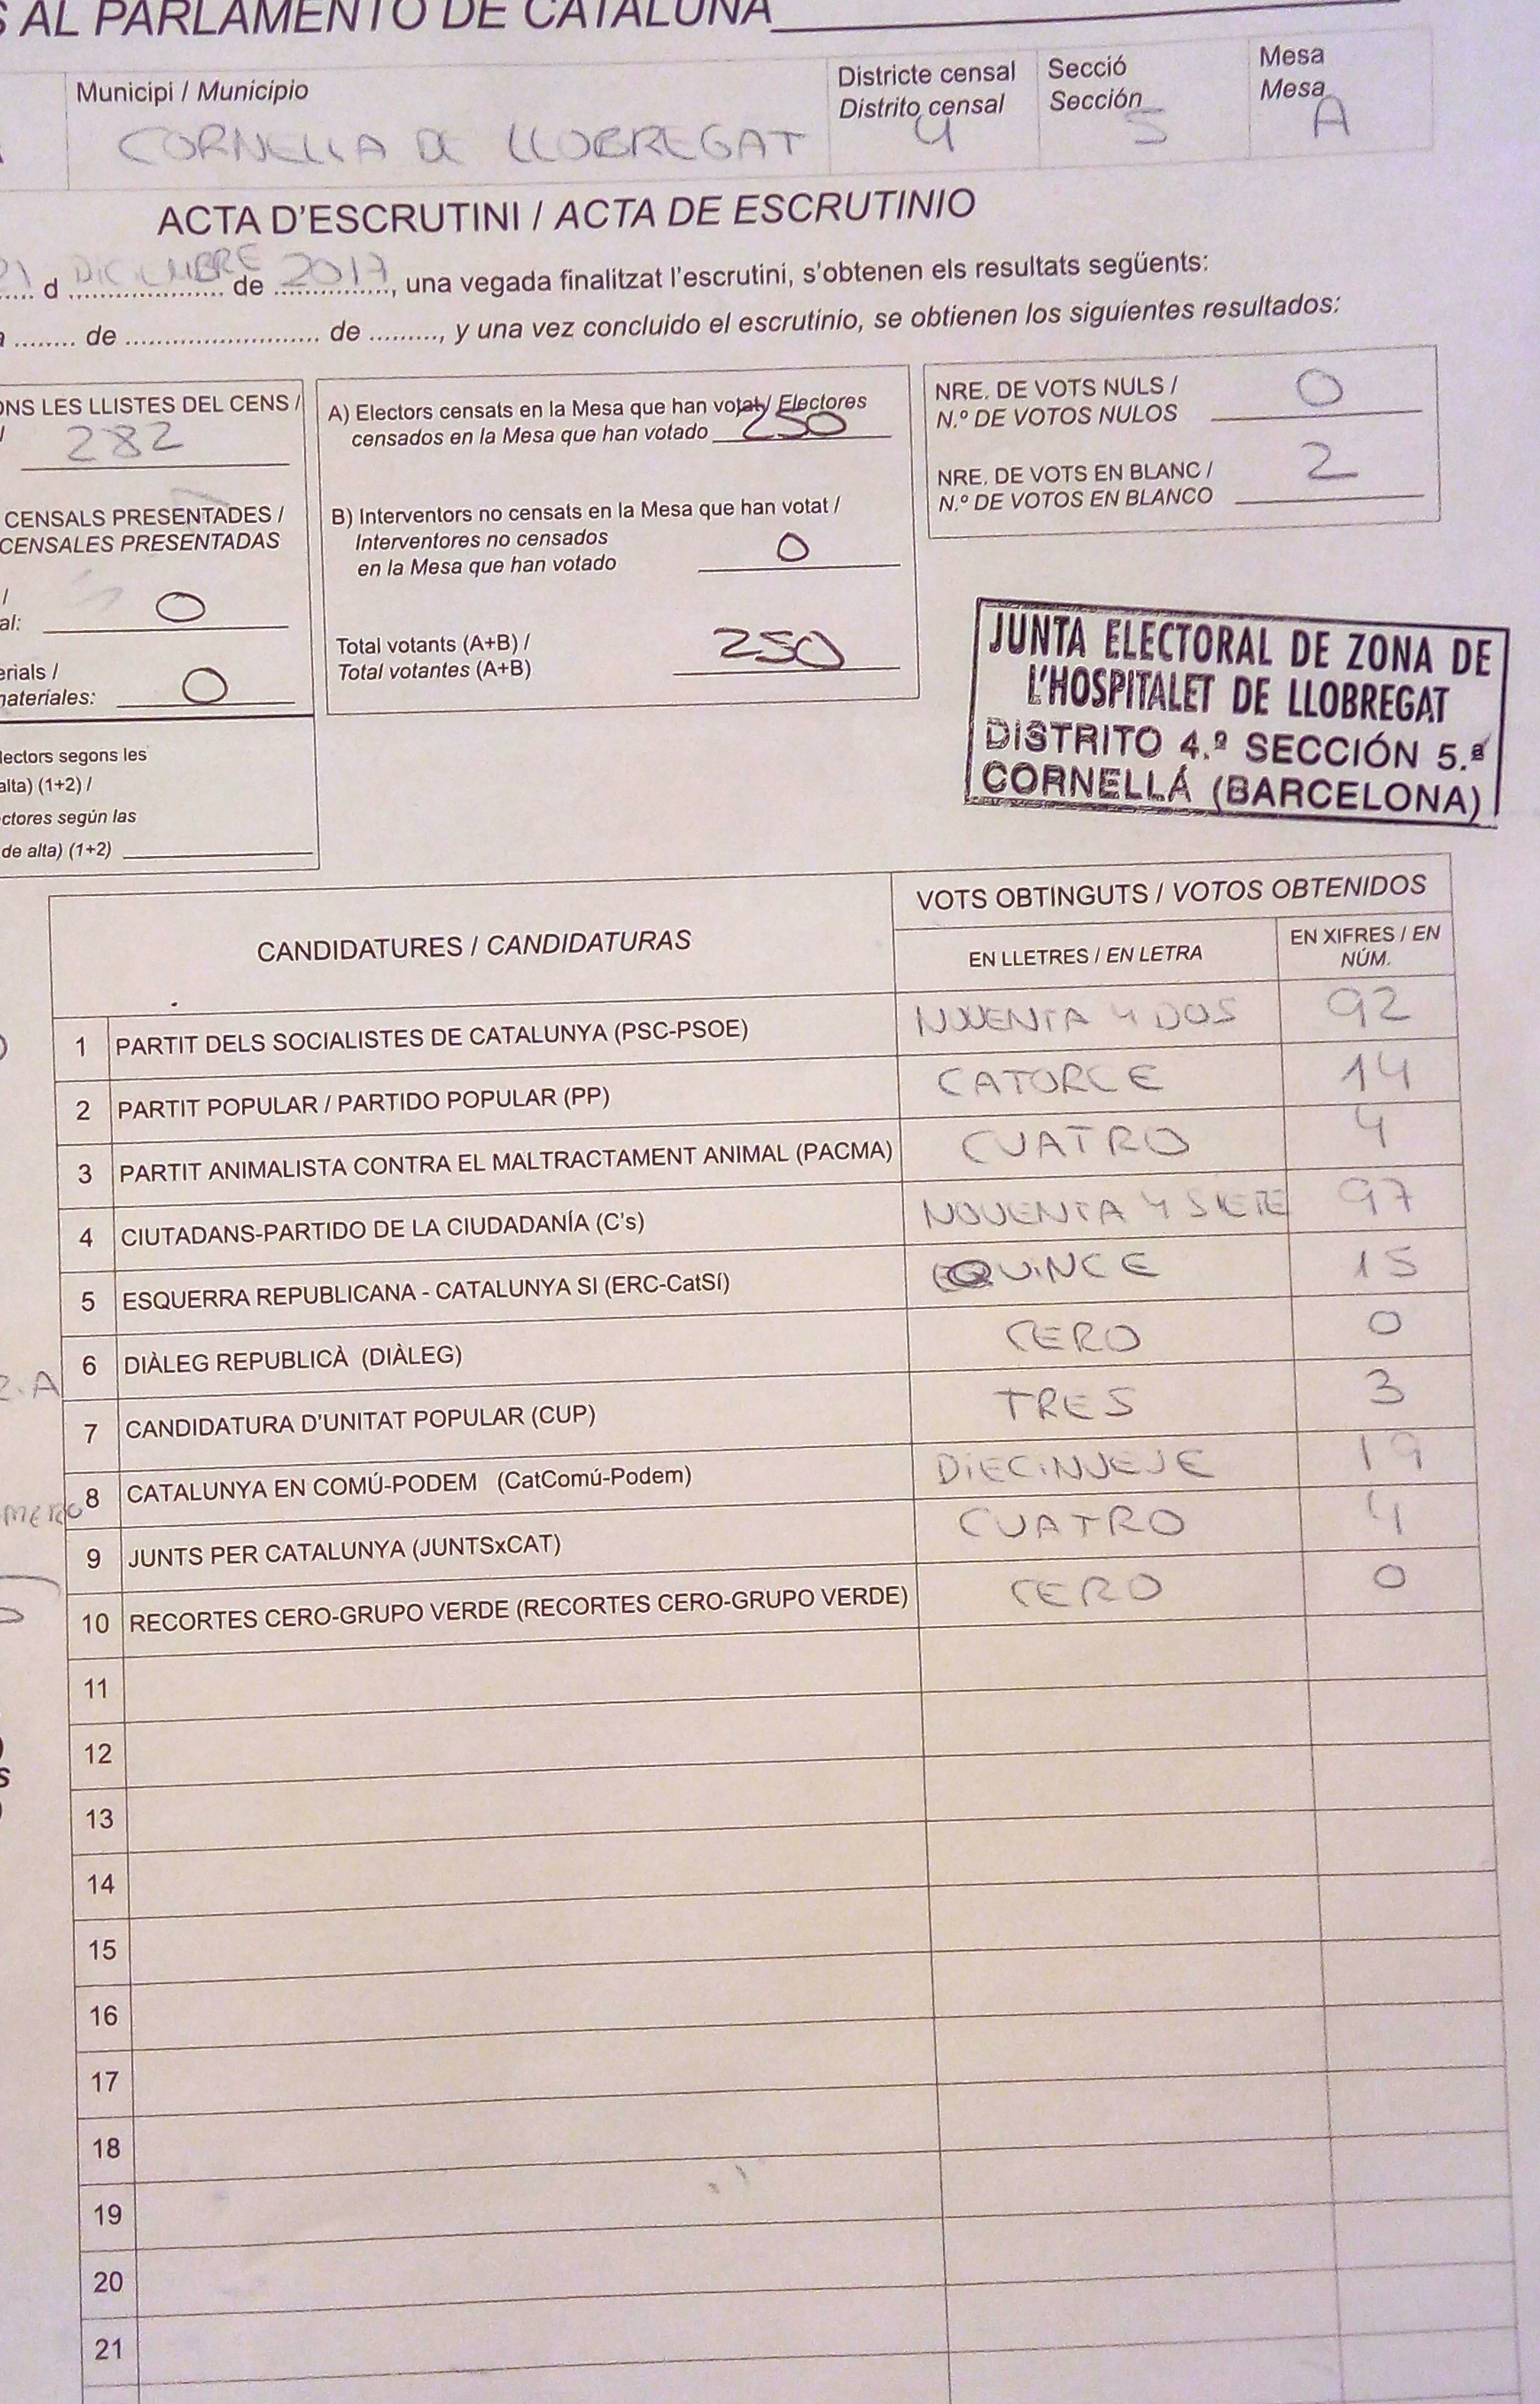 S AL PARLAMENTO DE CATALUÑA
Municipi / Municipio
CORNELLA DE LLOBREGAT
Districte censal
Distrito censal
4
Secció
Sección
5
Mesa
Mesa
A
ACTA D'ESCRUTINI / ACTA DE ESCRUTINIO
21 d DICIEMBRE de 2017, una vegada finalitzat l'escrutini, s'obtenen els resultats següents:
a ........ de .......................... de ........., y una vez concluido el escrutinio, se obtienen los siguientes resultados:
ONS LES LLISTES DEL CENS /
/
282
CENSALS PRESENTADES /
CENSALES PRESENTADAS
/
al: 0
erials /
materiales: 0
lectors segons les
alta) (1+2) /
ctores según las
de alta) (1+2)
A) Electors censats en la Mesa que han votat / Electores
censados en la Mesa que han votado 250
B) Interventors no censats en la Mesa que han votat /
Interventores no censados
en la Mesa que han votado 0
Total votants (A+B) /
Total votantes (A+B) 250
NRE. DE VOTS NULS /
N.º DE VOTOS NULOS 0
NRE. DE VOTS EN BLANC /
N.º DE VOTOS EN BLANCO 2
JUNTA ELECTORAL DE ZONA DE
L'HOSPITALET DE LLOBREGAT
DISTRITO 4.º SECCIÓN 5.ª
CORNELLÁ (BARCELONA)
CANDIDATURES / CANDIDATURAS
VOTS OBTINGUTS / VOTOS OBTENIDOS
EN LLETRES / EN LETRA
EN XIFRES / EN
NÚM.
1 PARTIT DELS SOCIALISTES DE CATALUNYA (PSC-PSOE) NOVENTA Y DOS 92
2 PARTIT POPULAR / PARTIDO POPULAR (PP) CATORCE 14
3 PARTIT ANIMALISTA CONTRA EL MALTRACTAMENT ANIMAL (PACMA) CUATRO 4
4 CIUTADANS-PARTIDO DE LA CIUDADANÍA (C's) NOVENTA Y SIETE 97
5 ESQUERRA REPUBLICANA - CATALUNYA SI (ERC-CatSí) QUINCE 15
6 DIÀLEG REPUBLICÀ (DIÀLEG) CERO 0
7 CANDIDATURA D'UNITAT POPULAR (CUP) TRES 3
8 CATALUNYA EN COMÚ-PODEM (CatComú-Podem) DIECINUEVE 19
9 JUNTS PER CATALUNYA (JUNTSxCAT) CUATRO 4
10 RECORTES CERO-GRUPO VERDE (RECORTES CERO-GRUPO VERDE) CERO 0
11
12
13
14
15
16
17
18
19
20
21